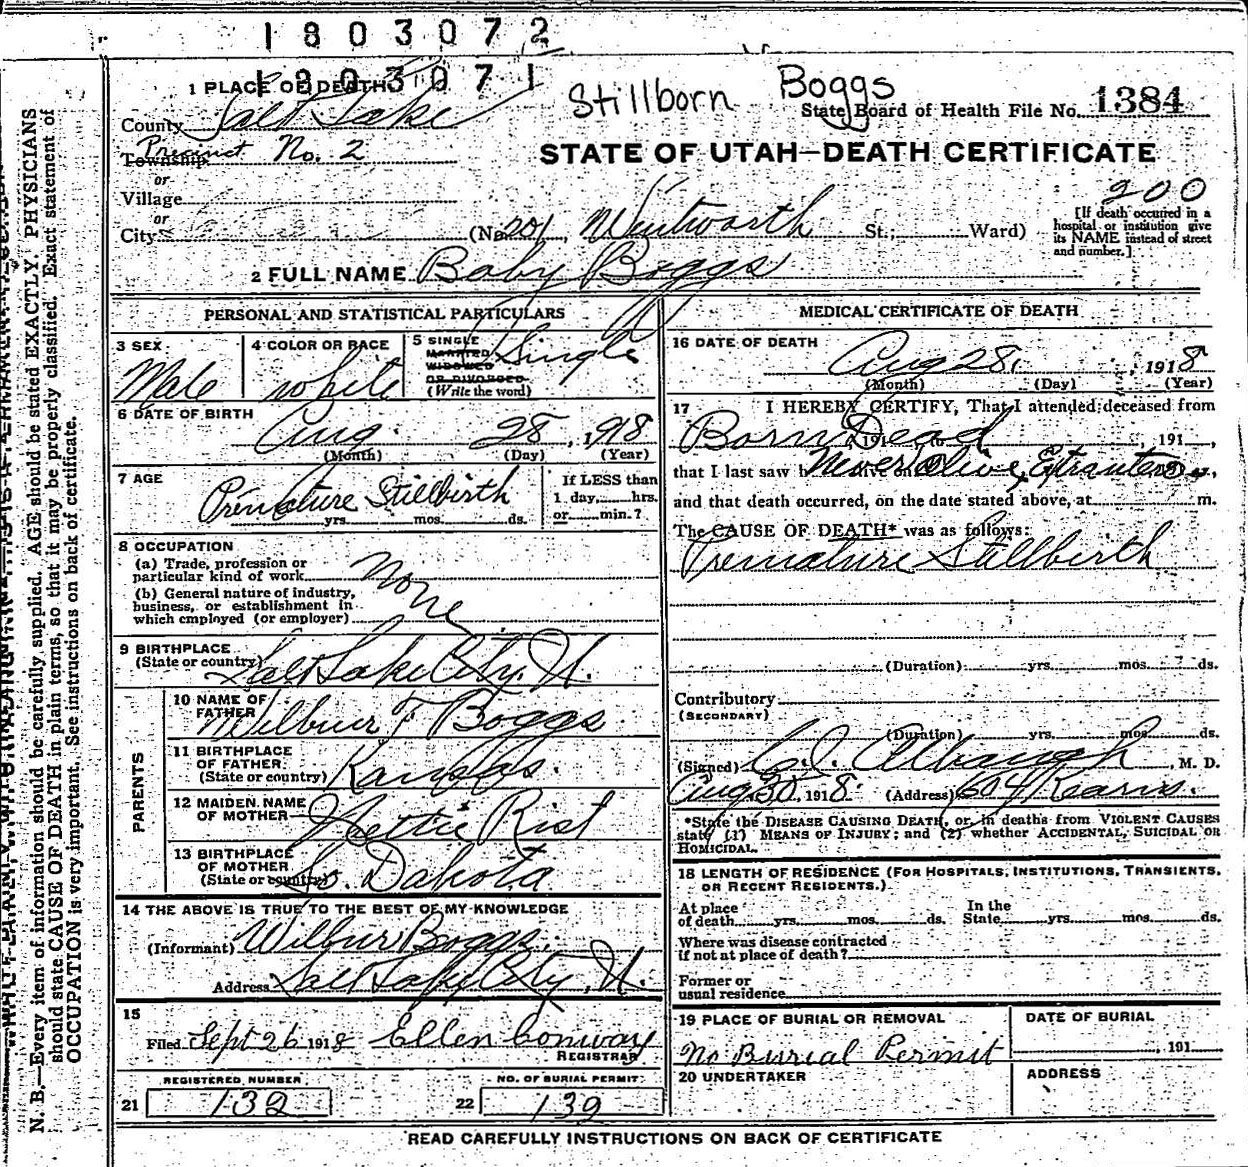 1803072
1803071
Stillborn Boggs
1 PLACE OF DEATH
State Board of Health File No. 1384
County Salt Lake
Precinct No. 2
Township
or
Village
STATE OF UTAH—DEATH CERTIFICATE
200
or
City (No. 201, Wentworth St.; Ward)
[If death occurred in a
hospital or institution give
its NAME instead of street
and number.]
2 FULL NAME Baby Boggs
PERSONAL AND STATISTICAL PARTICULARS
3 SEX Male
4 COLOR OR RACE white
5 SINGLE
MARRIED
WIDOWED
OR DIVORCED
(Write the word) Single
6 DATE OF BIRTH
Aug. 28, 1918
(Month) (Day) (Year)
7 AGE
Premature Stillbirth
yrs. mos. ds.
If LESS than
1 day, hrs.
or min.?
8 OCCUPATION
(a) Trade, profession or
particular kind of work None
(b) General nature of industry,
business, or establishment in
which employed (or employer)
9 BIRTHPLACE
(State or country) Salt Lake City, U.
PARENTS
10 NAME OF
FATHER Wilbur F Boggs
11 BIRTHPLACE
OF FATHER
(State or country) Kansas.
12 MAIDEN NAME
OF MOTHER Hettie Rist
13 BIRTHPLACE
OF MOTHER
(State or country) So. Dakota
14 THE ABOVE IS TRUE TO THE BEST OF MY KNOWLEDGE
(Informant) Wilbur Boggs.
Address Salt Lake City, U.
15
Filed Sept 26 1918 Ellen Conway
REGISTRAR
REGISTERED NUMBER
21 132
NO. OF BURIAL PERMIT
22 139
MEDICAL CERTIFICATE OF DEATH
16 DATE OF DEATH
Aug 28, 1918
(Month) (Day) (Year)
17 I HEREBY CERTIFY, That I attended deceased from
Born Dead, 191 , 191 ,
that I last saw h Never alive
and that death occurred, on the date stated above, at m.
The CAUSE OF DEATH* was as follows:
Premature Stillbirth
(Duration) yrs. mos. ds.
Contributory
(SECONDARY)
(Duration) yrs. mos. ds.
(Signed) C. J. Albaugh, M. D.
Aug 30, 1918. (Address) 604 Kearns.
*State the DISEASE CAUSING DEATH, or, in deaths from VIOLENT CAUSES
state (1) MEANS OF INJURY; and (2) whether ACCIDENTAL, SUICIDAL OR
HOMICIDAL.
18 LENGTH OF RESIDENCE (FOR HOSPITALS, INSTITUTIONS, TRANSIENTS,
OR RECENT RESIDENTS.)
At place
of death yrs. mos. ds.
In the
State yrs. mos. ds.
Where was disease contracted
if not at place of death?
Former or
usual residence
19 PLACE OF BURIAL OR REMOVAL
No Burial Permit
DATE OF BURIAL
, 191
20 UNDERTAKER
ADDRESS
READ CAREFULLY INSTRUCTIONS ON BACK OF CERTIFICATE
N. B.—Every item of information should be carefully supplied. AGE should be stated EXACTLY. PHYSICIANS
should state CAUSE OF DEATH in plain terms, so that it may be properly classified. Exact statement of
OCCUPATION is very important. See instructions on back of certificate.